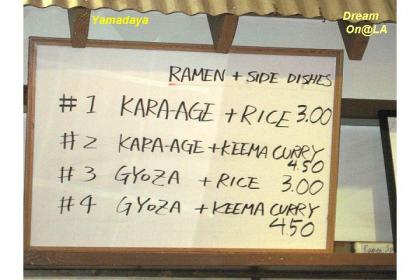 Yamadaya
Dream
On@LA
RAMEN + SIDE DISHES
#1 KARA-AGE + RICE 3.00
#2 KARA-AGE + KEEMA CURRY
4.50
#3 GYOZA + RICE 3.00
#4 GYOZA + KEEMA CURRY
4.50